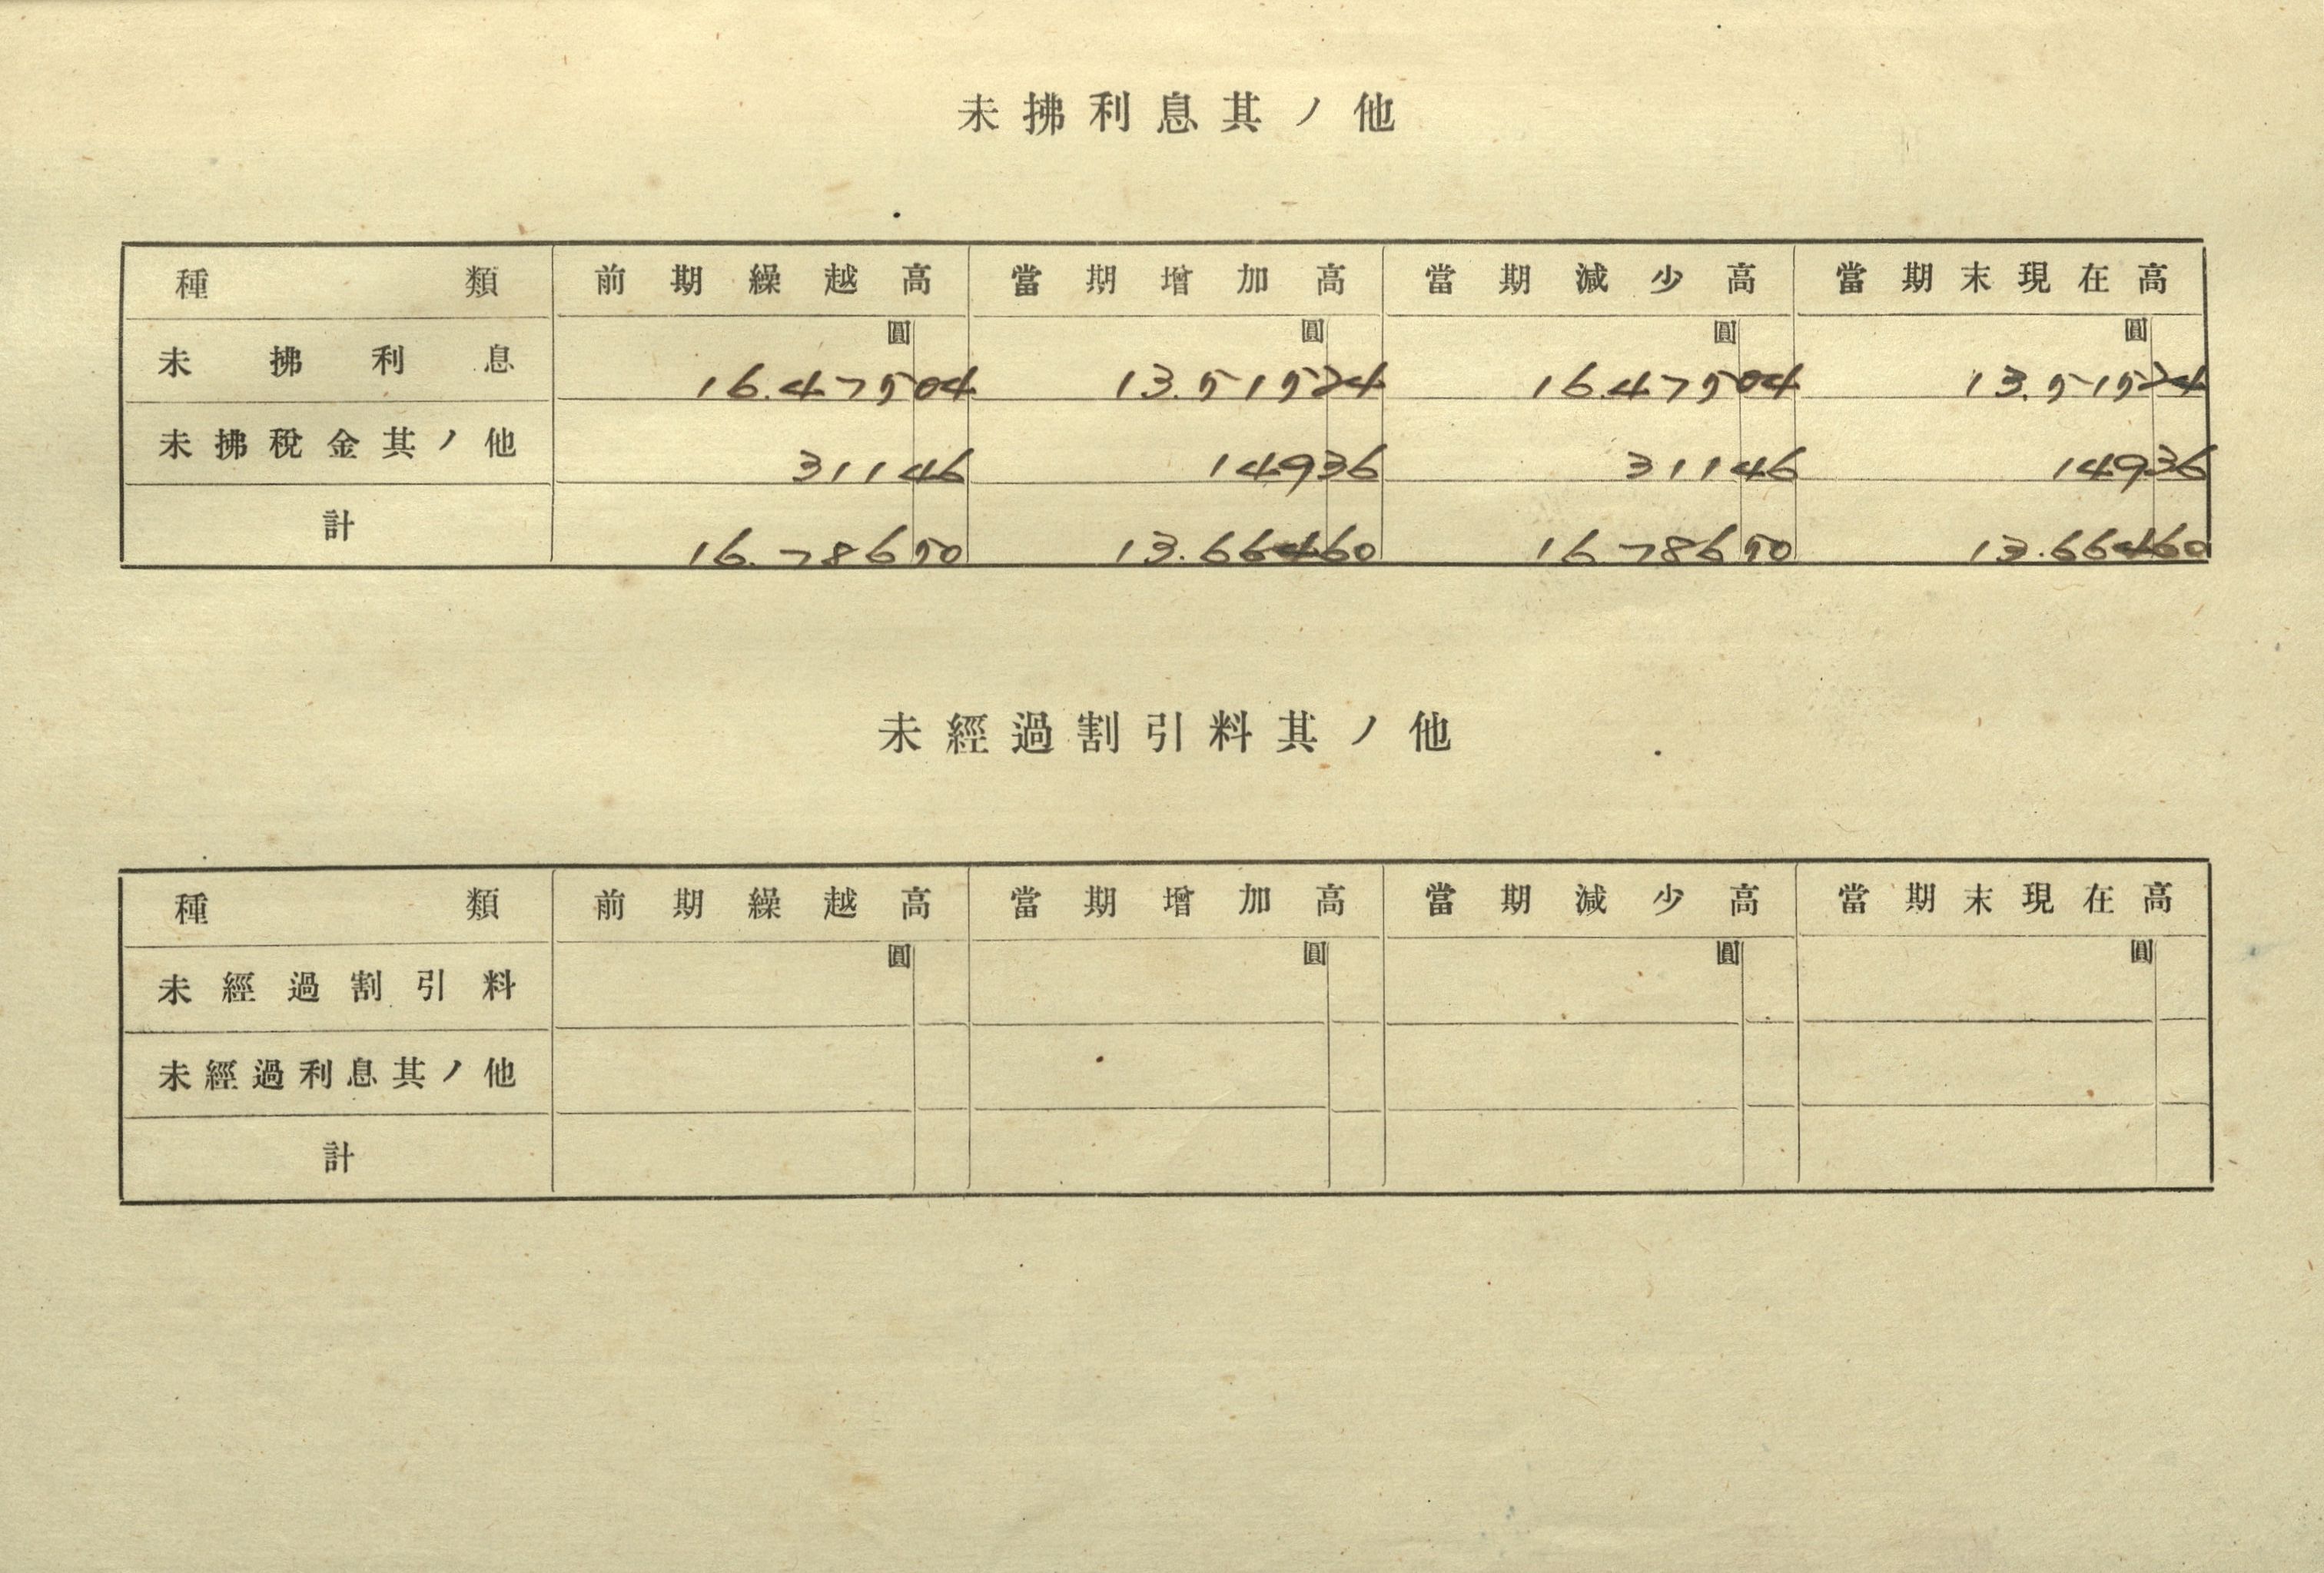 未拂利息其ノ他
種類 前期繰越高 當期增加高 當期減少高 當期末現在高
圓 圓 圓 圓
未拂利息 16.475 04 13.515 24 16.475 04 13.515 24
未拂稅金其ノ他 311 46 149 36 311 46 149 36
計 16.786 50 13.664 60 16.786 50 13.664 60
未經過割引料其ノ他
種類 前期繰越高 當期增加高 當期減少高 當期末現在高
圓 圓 圓 圓
未經過割引料
未經過利息其ノ他
計